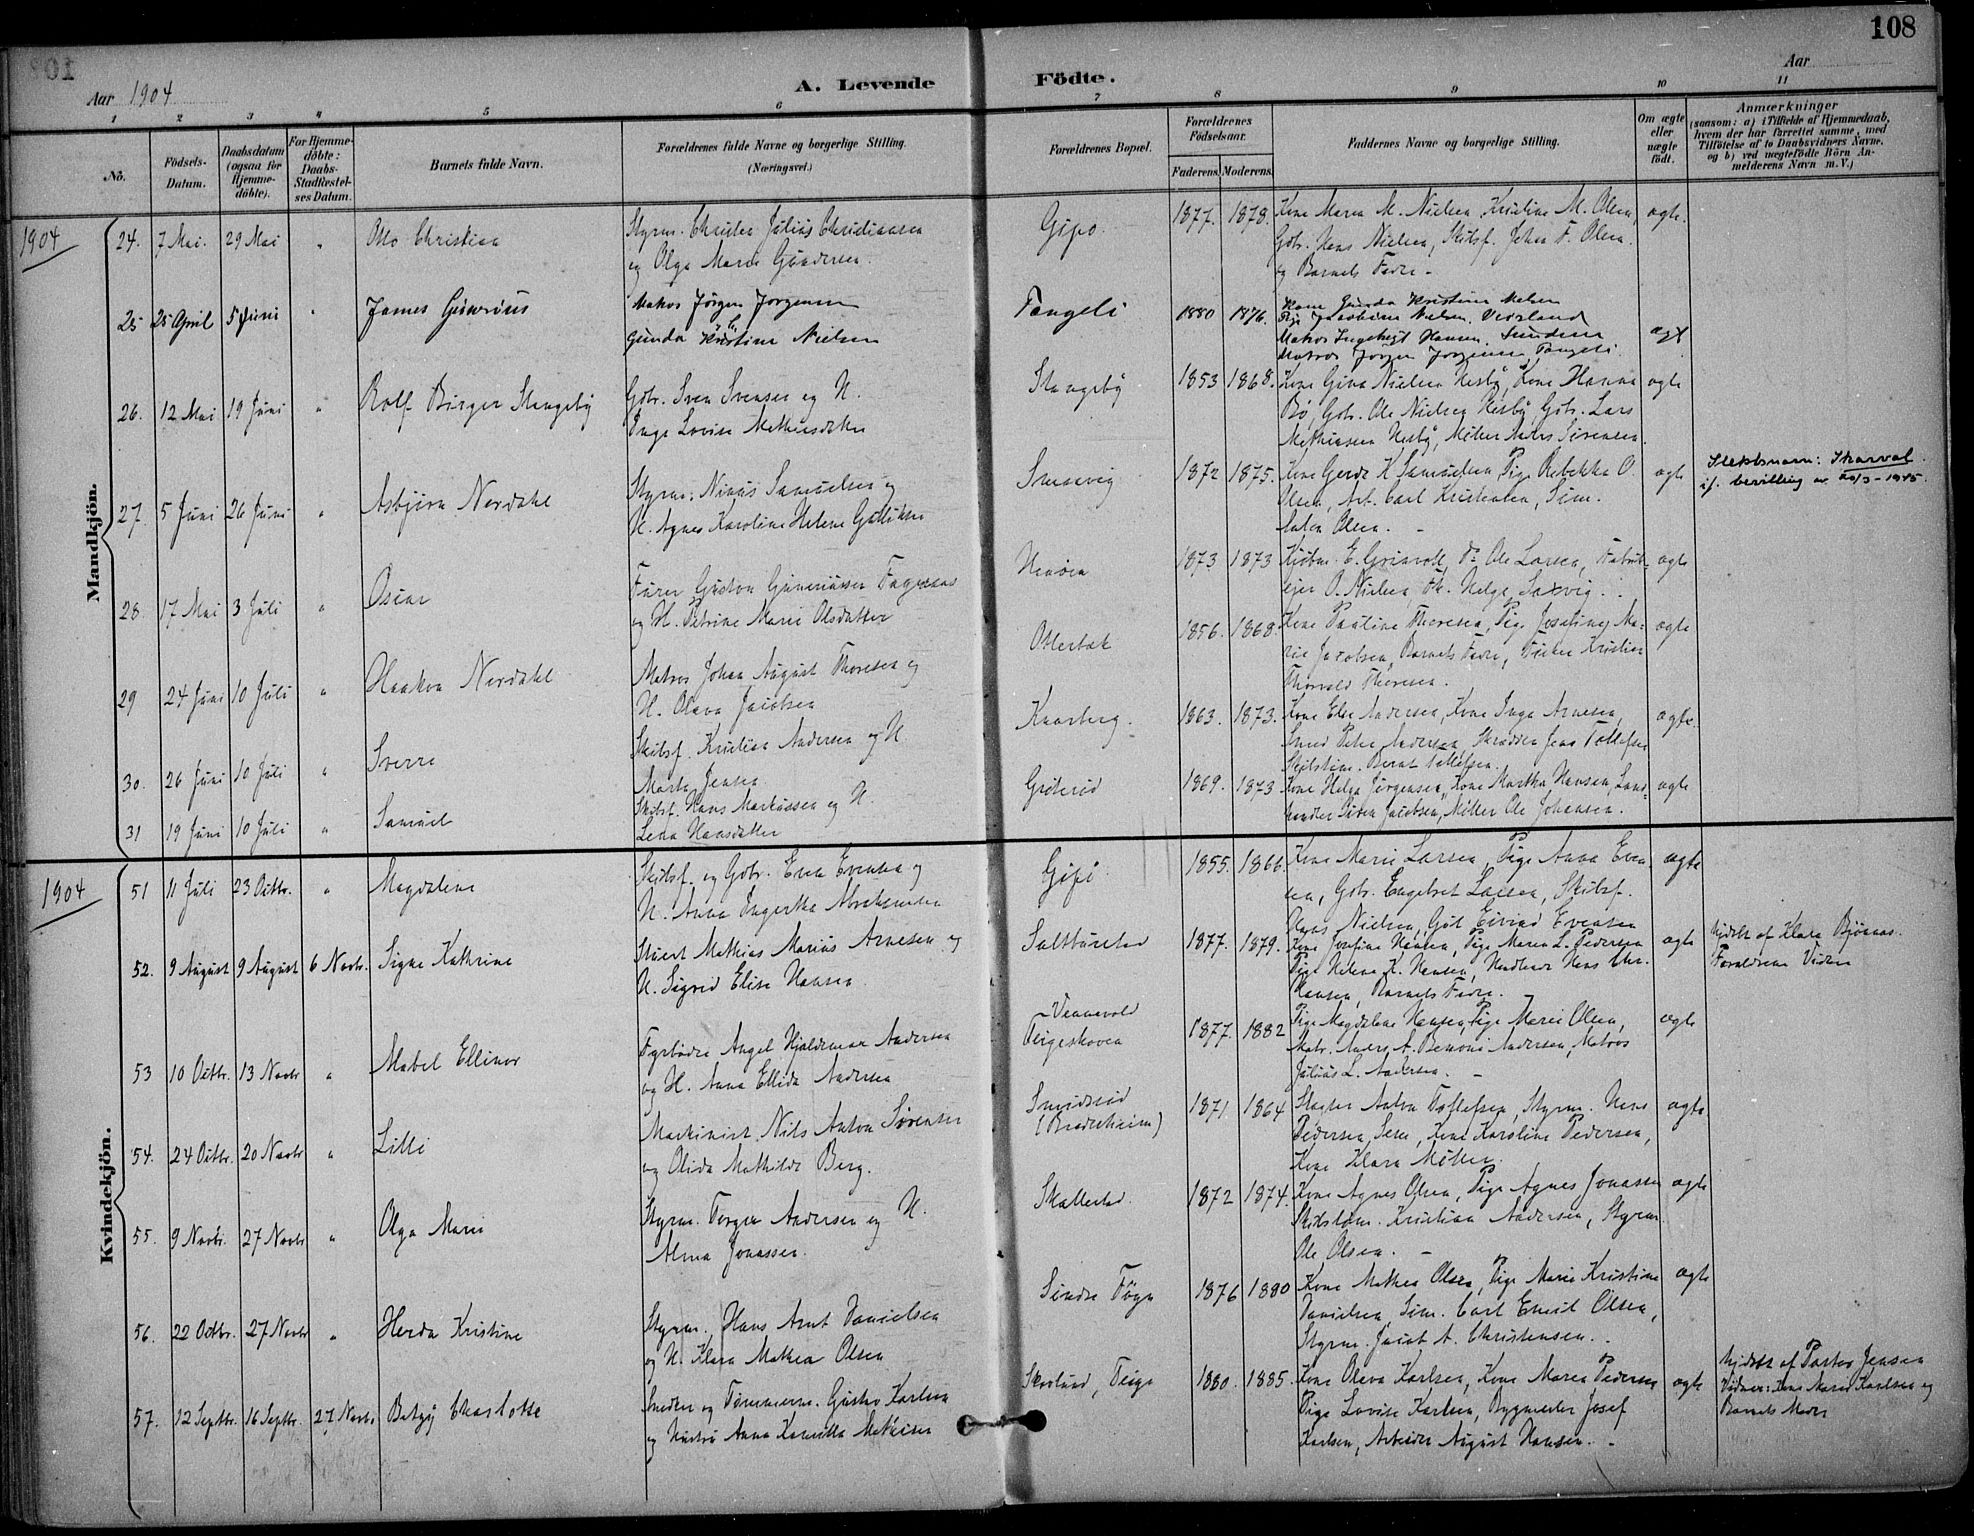 108
Aar 1904
A. Levende Födte.
Aar
1 2 3 4 5 6 7 8 9 10 11
No.
Födsels-Datum.
Daabsdatum (ogsaa for Hjemmedöbte).
For Hjemmedöbte: Daabs-Stadfæstelses Datum.
Barnets fulde Navn.
Forældrenes fulde Navne og borgerlige Stilling. (Næringsvei.)
Forældrenes Bopæl.
Forældrenes Födselsaar.
Faderens. Moderens.
Faddernes Navne og borgerlige Stilling.
Om ægte eller uægte födt.
Anmærkninger
(saasom: a) i Tilfælde af Hjemmedaab, hvem der har forrettet samme, med Tilföielse af to Daabsvidners Navne, og b) ved uægtefödte Börn Anmelderens Navn m. V.)
Mandkjön.
1904
24. 7 Mai. 29 Mai " Otto Christian
Styrm. Charles Julius Christiansen
og Olga Marie Gundersen.
Gipø 1877. 1878.
Kone Maren M. Nielsen, Kristine M. Olsen,
Gbr. Hans Nielsen, Skibsf. Johan F. Olsen.
og Barnets Fader - ægte.
25 25 April 5 Juni " James Gunerius
Matros Jörgen Jorgensen
Gunda Kristine Nielsen
Tangeli 1880 1876.
Kone Gunda Kristine Nielsen
Pige Jacobine Nielsen. Veirland
Matros Ingebrigt Hansen. Sundene
Matros Jorgen Jorgensen, Tangeli. ægt
26. 12 Mai 19 Juni " Rolf Birger Stangeby
Gbr. Sven Svensen og H.
Inga Lovise Mathiesdatter
Stangeby 1853 1868.
Kone Gina Nielsen Nesbÿ, Kone Hanna
Bø, Gbr. Ole Nielsen Nesbÿ, Gbr. Lars
Mathiasen Nesbÿ, Møller Anders Sörensen. ægte
27. 5 Juni 26 Juni " Asbjörn Nordahl
Styrm. Ninus Samuelsen og
H. Agnes Karoline Helene Gulliksen
Smusevig 1872 1875.
Kone Gerda K. Samuelsen, Pige Rebekka O.
Olsen, Arb. Carl Kristensen, Sim.
Anton Olsen. - ægte
Slektsnavn: Skarvøl.
if. bevilling av 20/3-1945.
28. 17 Mai 3 Juli " Oscar
Furer Gustav Guneriussen Fagernes
og H. Petrine Marie Olsdatter
1873 1873
Kjöbm. E. Grinvoll, do Ole Larsen, Fabrik-
ejer O. Nielsen, Fr. Helga Saxvig. ægte
29 24 Juni 10 Juli " Haakon Nordahl
Matros Johan August Thoresen og
H. Olava Jacobsen
Otterbæk 1856. 1868.
Kone Pauline Thoresen, Pige Josefine Ma-
rie Jacobsen, Barnets Fader, Fisker Kristian
Thorvald Thoresen. ægte
30. 26 Juni 10 Juli " Sverre
Skibsf. Kristian Andersen og H.
Marta Jensen
Kaarberg. 1863. 1873.
Kone Else Andersen, Kone Inga Arnesen,
Smed Peter Andersen, Skrædder Jens Tollefsen
Skibstöm. Bernt Tollefsen. ægte.
31 19 Juni 10 Juli " Samuel
Skibsf. Hans Markussen og H.
Lena Hansdatter
1869. 1873
Kone Helga Jörgensen, Kone Martha Hansen, Land-
handler Sören Jacobsen, Möller Ole Johansen. ægte
Kvindekjön.
1904
51 11 Juli 23 Octbr. " Magdalene
Skibsf. og Gbr. Even Evensen og
H. Anna Ingertha Abrahamsen
Gipø 1855. 1866.
Kone Marie Larsen, Pige Anna Even-
sen, Gbr. Engebret Larsen, Skibsf.
Hans Nielsen, Gbr Eivind Evensen ægte
52. 9 August 9 August 6 Novbr. Signe Kathrine
Stuert Mathias Marius Arnesen og
H. Sigrid Elise Hansen
Saltbustad 1877. 1879.
Kone Josefine Hansen, Pige Maren L. Pedersen
Pige Helene K. Hansen, Hans Chr.
Hansen, Barnets Fader. ægte
hjdøbt af Klara Bjönnes.
Forældrene Vidner
53 10 Octbr. 13 Novbr " Mabel Ellinor
Fyrböder Angel Hjaldemar Andersen
og H. Anna Ellida Andersen
Vennevold
Teigeskoven 1877. 1882
Pige Magdalene Hansen, Pige Marie Olsen,
Matr. Anders A. Bemoni Andersen, Matros
Julius L. Andersen. - ægte
54. 24 Octbr. 20 Novbr " Lilli
Maskinist Nils Anton Sörensen
og Olida Mathilde Berg.
Smidsrød
(Brödreheim) 1871. 1864
Slagter Anton Tollefsen, Styrm. Hans
Pedersen, Sem, Kone Karoline Pedersen,
Kone Klara Möller. ægte
55. 9 Novbr. 27 Novbr " Olga Marie
Styrm. Torger Andersen og H.
Alma Jonassen.
Skallestad. 1872 1874.
Kone Agnes Olsen, Pige Agnes Jonassen
Skibstöm. Kristian Andersen, Styrm.
Ole Olsen. - ægte
56. 22 Octbr. 27 Novbr " Herda Kristine
Styrm. Hans Arnt Danielsen
og H. Klara Mathea Olsen
Söndre Föyn 1876 1880
Kone Mathea Olsen, Pige Marie Kristine
Danielsen, Sim. Carl Emil Olsen,
Styrm. Jacob A. Christensen. - ægte
57. 12 Septbr. 16 Septbr. 27 Novbr. Betzÿ Charlotte
Snedker og Tömmerm. Gustav Karlsen
og Hustru Anna Kamilla Mathisen
Skovlund, Teige 1880. 1885.
Kone Olava Karlsen, Kone Maren Pedersen
Pige Lovise Karlsen, Bygmester Josef
Karlsen, Arbeider August Hansen. - ægte
hjdöbt af Pastor Jensen
Vidner: Kone Maren Karlsen og
Barnets Moder